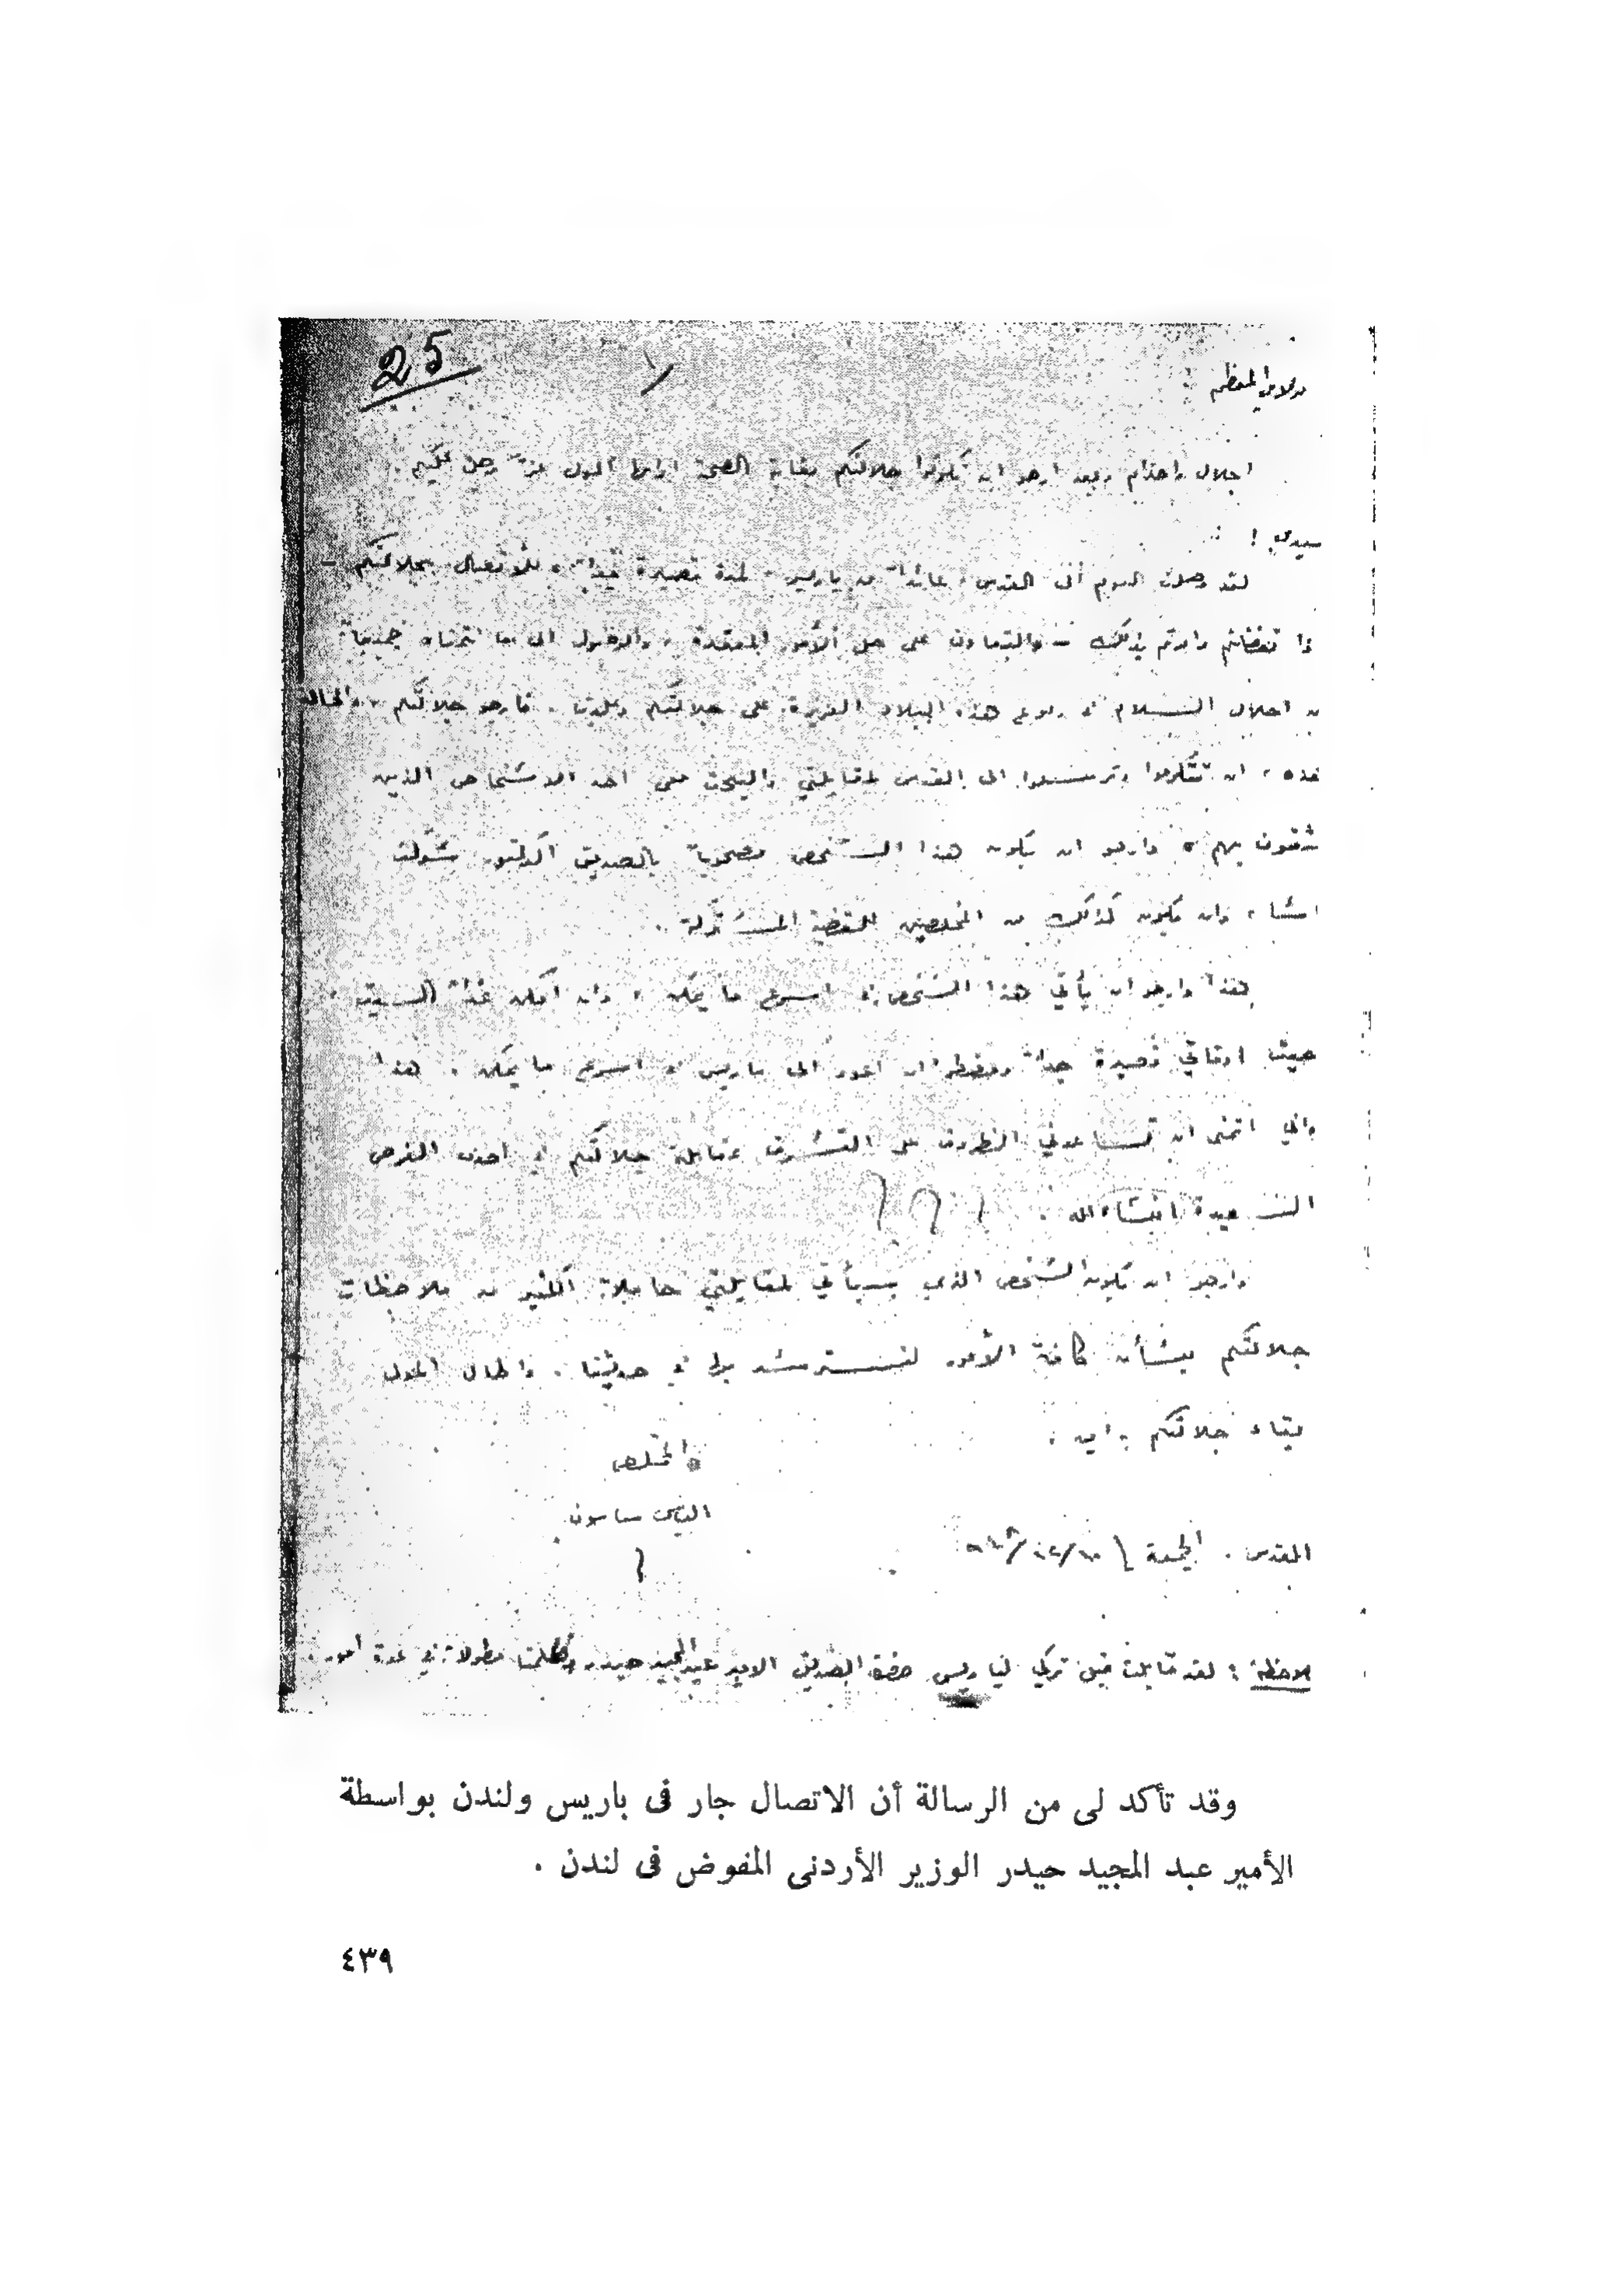 25
مولاي المعظم
اجلال واحترام وبعد ارجو ان تكونوا جلالتكم بغاية الصحة ادامها المولى عز وجل عليكم .
سيدي !
لقد وصلت اليوم الى القدس ، عائداً من باريس ، لمدة قصيرة جداً ، للأتصال بجلالتكم –
اذا تفضلتم وامرتم بذلك – والتعاون على حل الأمور المعقدة ، والوصول الى ما نتمناه جميعاً
من احلال السلام في ربوع هذه البلاد العزيزة على جلالتكم وعلينا . فارجو جلالتكم ، والحالة
هذه ، ان تتكرموا وترسلوا الى القدس لمقابلتي والبحث معي احد الاشخاص الذين
تثقون بهم ، وارجو ان يكون هذا الشخص مصحوباً بالصديق الدكتور شوكت
باشا ، وان يكون كذلك من المخلصين للقضية المشتركة .
هذا وارجو ان يأتي هذا الشخص في اسرع ما يمكن ، وان امكن غداً السبت ،
حيث اوقاتي قصيرة جداً ومضطر ان اعود الى باريس في اسرع ما يمكن . هذا
واني اتمنى ان تساعدني الظروف على التشرف بمقابلة جلالتكم في احدى الفرص
السعيدة انشاء الله .
وارجو ان يكون الشخص الذي سيأتي لمقابلتي حاملاً الكثير من ملاحظات
جلالتكم بشأن كافة الأمور لنسترشد بها في حديثنا . واطال المولى
بقاء جلالتكم ،
المخلص
الياس ساسون
القدس . الجمعة
ملاحظة : لقد قابلت قبل تركي لباريس حضرة الصديق الامير عبدالمجيد حيدر وتكلمنا مطولاً في عدة أمور .
وقد تأكد لى من الرسالة أن الاتصال جار فى باريس ولندن بواسطة
الأمير عبد المجيد حيدر الوزير الأردنى المفوض فى لندن .
٤٣٩